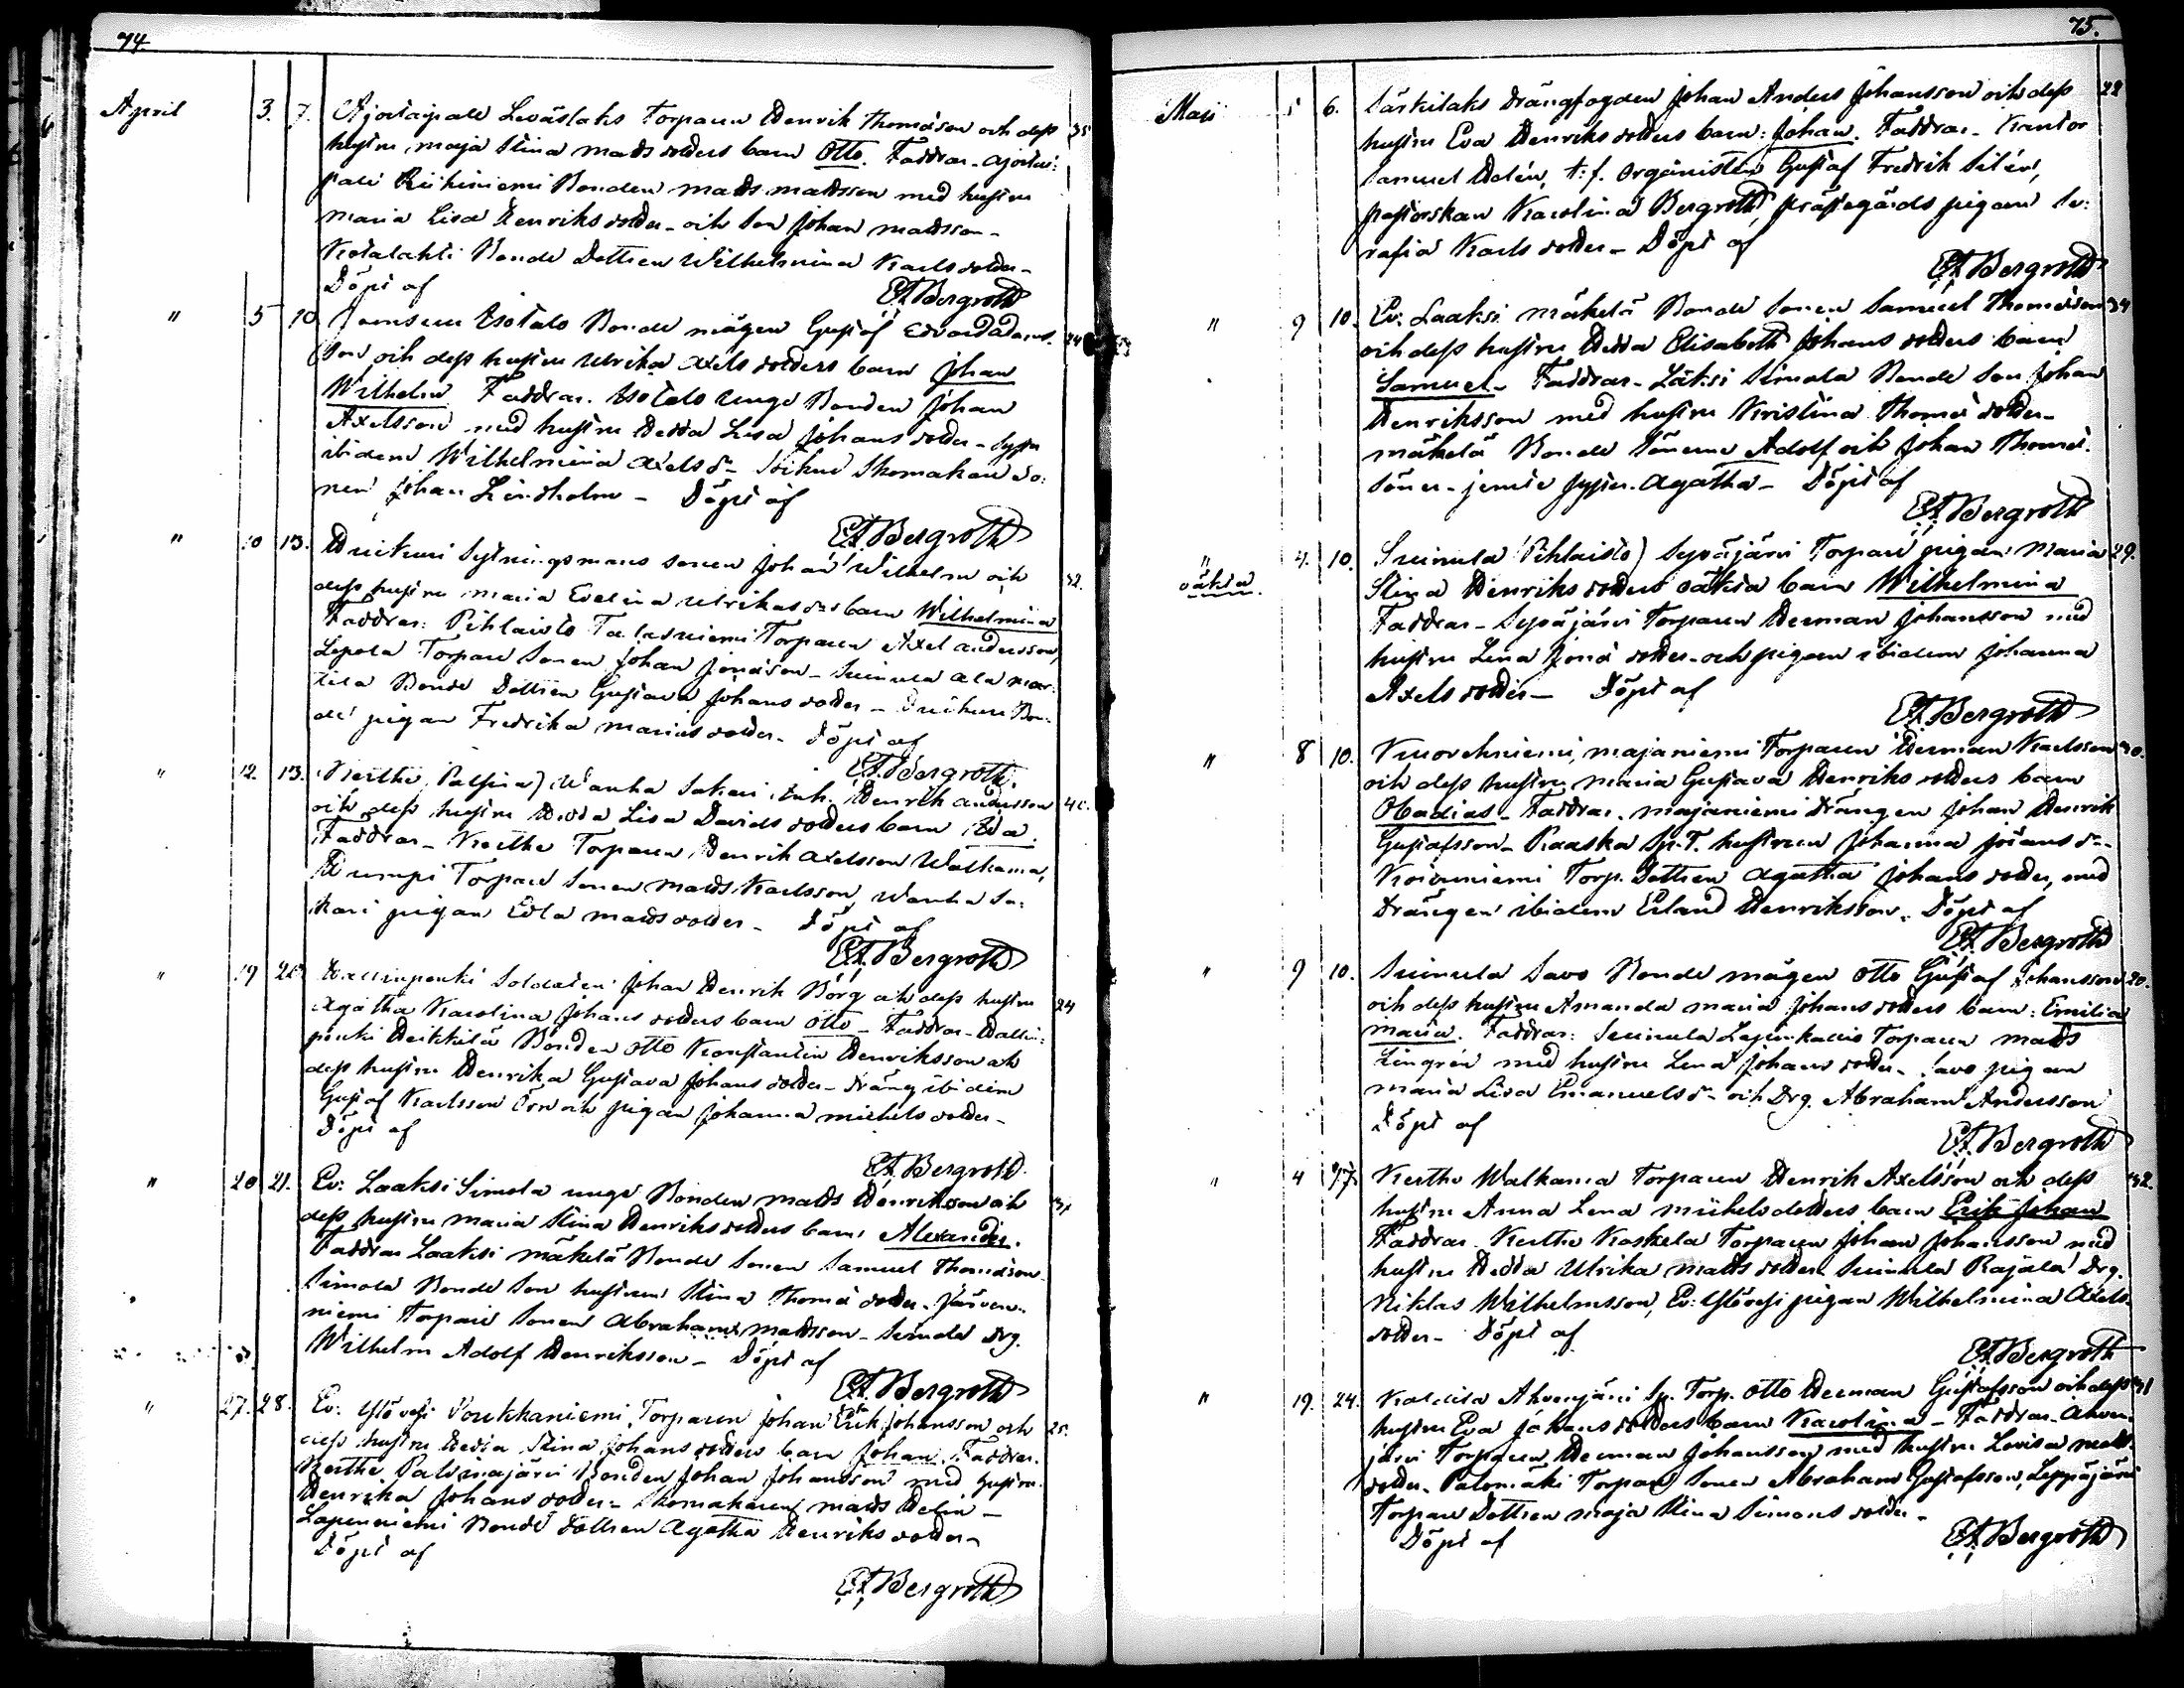 74
April 3. 7. Ajostaipale Leväslaks Torparen Henrik Thomasson och dess 35
hustru Maja Stina Mats dotters barn Otto. Faddrar - Ajostai:
pale Riihiniemi Bonden Mats Matsson med hustru
Maria Lisa Henriks dotter - och Son Johan Matsson -
Kotalahti Bonde Dottren Wilhelmina Karls dotter -
Döpt af
EA Bergroth
" 5 10 Isotalo Bonde mågen Gustaf Edvard Adams 24
son och dess hustru Ulrika Axels dotters barn Johan
Wilhelm Faddrar. Isotalo unge Bonden Johan
Axelsson med hustru Hedda Lisa Johans dotter - Syster
ibidem Wilhelmina Axels dr Skomakare So:
nen Johan Lindholm - Döpt af
EA Bergroth
" 10 13. Sytningsmans sonen Johan Wilhelm och 32.
dess hustru Maria Evelina Ulrikas dr barn Wilhelmina
Faddrar: Pihlaisto Torparen Axel Andersson,
Lepola Torpare Sonen Johan Jonasson - Suinula Ala mar
tila Bonde Dottren Gustava Johans dotter - Bon:
de pigan Fredrika Marias dotter - Döpt af
EA Bergroth
" 12. 13. Kertte, Wanha Sakari Inh. Henrik Andersson 40.
och dess hustru Hedda Lisa Davids dotters barn Ida.
Faddrar - Kertte Torparen Henrik Axelsson Walkama,
Torpare Sonen Mats Karlsson, Wanha Sa:
kari pigan Edla Mats dotter - Döpt af
EA Bergroth
" 19 21. Hallinpenki Soldaten Johan Henrik Borg och dess hustru 24
Agatha Karolina Johans dotters barn Otto - Faddrar - Hallin:
penki Heikkilä Bonden Otto Konstantin Henriksson och
dess hustru Henrika Gustava Johans dotter - dräng ibidem
Gustaf Karlsson Örn och pigan Johanna Michels dotter -
Döpt af
EA Bergroth
" 20 21. Ev: Laaksi Simola unge Bonden Mats Henriksson och
dess hustru Maria Stina Henriks dotters barn Alexander.
Faddrar Laaksi Mäkelä Bonde Sonen Samuel Thomasson
Simola Bonde Son hustrun Stina Thomas dotter. Järven
niemi Torpare Sonen Abraham Matsson - Simola Drg.
Wilhelm Adolf Henriksson - Döpt af
EA Bergroth
" 27. 28. Ev: Ylövesi Poukkaniemi, Torparen Johan Erik Johansson och 25.
dess hustru Hedda Stina Johans dotters barn Johan. Faddrar.
Kertte Palsinajärvi Bonden Johan Johansson med hustru
Henrika Johans dotter - Skomakaren Mats Helin -
Lapinniemi Bonde Dottren Agatha Henriks dotter -
Döpt af
EA Bergroth
75.
Maii 5 6. Särkilaks Drängfogden Johan Anders Johansson och dess 22
hustru Eva Henriks dotters barn: Johan. Faddrar - Kantor
Samuel Helén, t:f. Organisten Gustaf Fredrik Silén,
pastorskan Karolina Bergroth, prästgårds pigan Se:
rafia Karls dotter - Döpt af
EA Bergroth
" 9 10. Ev: Laaksi Mäkelä Bonde Sonen Samuel Thomasson 34
och dess hustru Hedda Elisabeth Johans dotters barn
Samuel - Faddrar - Laksi Simola Bonde Son Johan
Henriksson med hustru Kristina Thomas dotter -
Mäkelä Bonde Sönerne Adolf och Johan Thomas
Söner - jemte syster Agatha - Döpt af
EA Bergroth
" 4. 10. Suinula (Pihlaisto) Sepäjärvi Torpare pigan Maria 29.
oäkta. Stina Henriks dotters oäkta barn Wilhelmina
Faddrar - Sepäjärvi Torparen Herman Johansson med
hustru Lena Jonas dotter - och pigan ibidem Johanna
Axels dotter - Döpt af
EA Bergroth
" 8 10. Kuorehniemi, Majaniemi Torparen Herman Karlsson 40.
och dess hustru, Maria Gustava Henriks dotters barn
Obadias - Faddrar. Majaniemi Drängen Johan Henrik
Gustafsson - Raaska Sp. T. hustrun Johanna Johans dr -
Koivuniemi Torp. Dottren Agatha Johans dotter, med
Drängen ibidem Erland Henriksson. Döpt af
EA Bergroth
" 9 10. Suinula Savo Bonde mågen Otto Gustaf Johansson 20.
och dess hustru Amanda Maria Johans dotters barn: Emilia
Maria. Faddrar: Suinula Torparen Mats
Lingrén med hustru Lena Johans dotter - Savo pigan
Maria Lisa Emanuels dr och Drg. Abraham Andersson
Döpt af
EA Bergroth
" 4 17. Kertte Walkama Torparen Henrik Axelsson och dess 42.
hustru Anna Lena Michels dotters barn Erik Johan
Faddrar Kertte Koskela Torparen Johan Johansson med
hustru Hedda Ulrika Mats dotter Suinula Rajala Drg.
Niklas Wilhelmsson, Ev: Ylövesi pigan Wilhelmina Axels
dotter - Döpt af
EA Bergroth
" 19. 24. Ahvenjärvi Sp. Torp. Otto Herman Gustafsson och dess 31
hustru Eva Johans dotters barn Karolina - Faddrar - Ahven
järvi Torparen Herman Johansson med hustru Lovisa Mats
dotter - Palomäki Torpare Sonen Abraham Gustafsson, Leppäjärvi
Torpare Dottren Maja Stina Simons dotter -
Döpt af
EA Bergroth